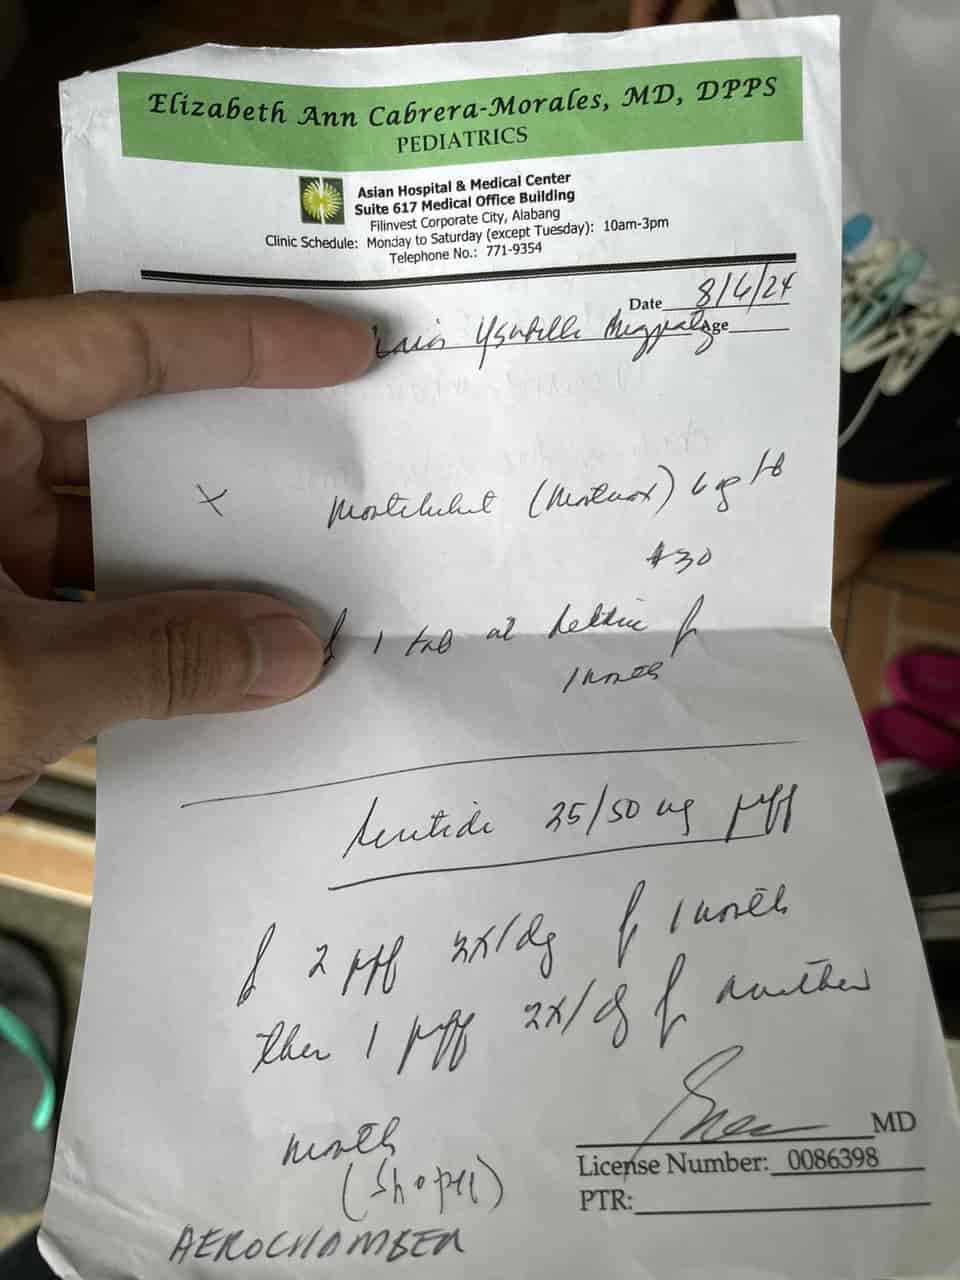 Elizabeth Ann Cabrera-Morales, MD, DPPS
PEDIATRICS
Asian Hospital & Medical Center
Suite 617 Medical Office Building
Filinvest Corporate City, Alabang
Clinic Schedule: Monday to Saturday (except Tuesday): 10am-3pm
Telephone No.: 771-9354
Date 8/6/24
Ysabelle Age
Montelukast
#30
1 tab at bedtime for
1 month
Seretide 25/50 ug puff
2 puff 2x/day for 1 month
then 1 puff 2x/day for another
month
MD
License Number: 0086398
PTR:
(Shopee)
AEROCHAMBER